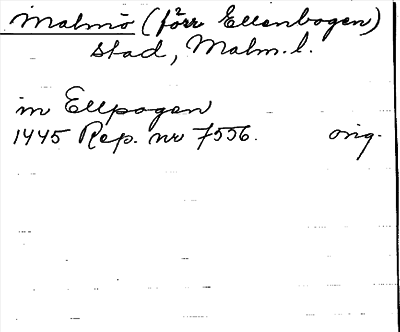 Malmö (förr Ellenbogen)
stad, Malm.l.
in Ellpogen
1445 Rep. nr 7556. orig.